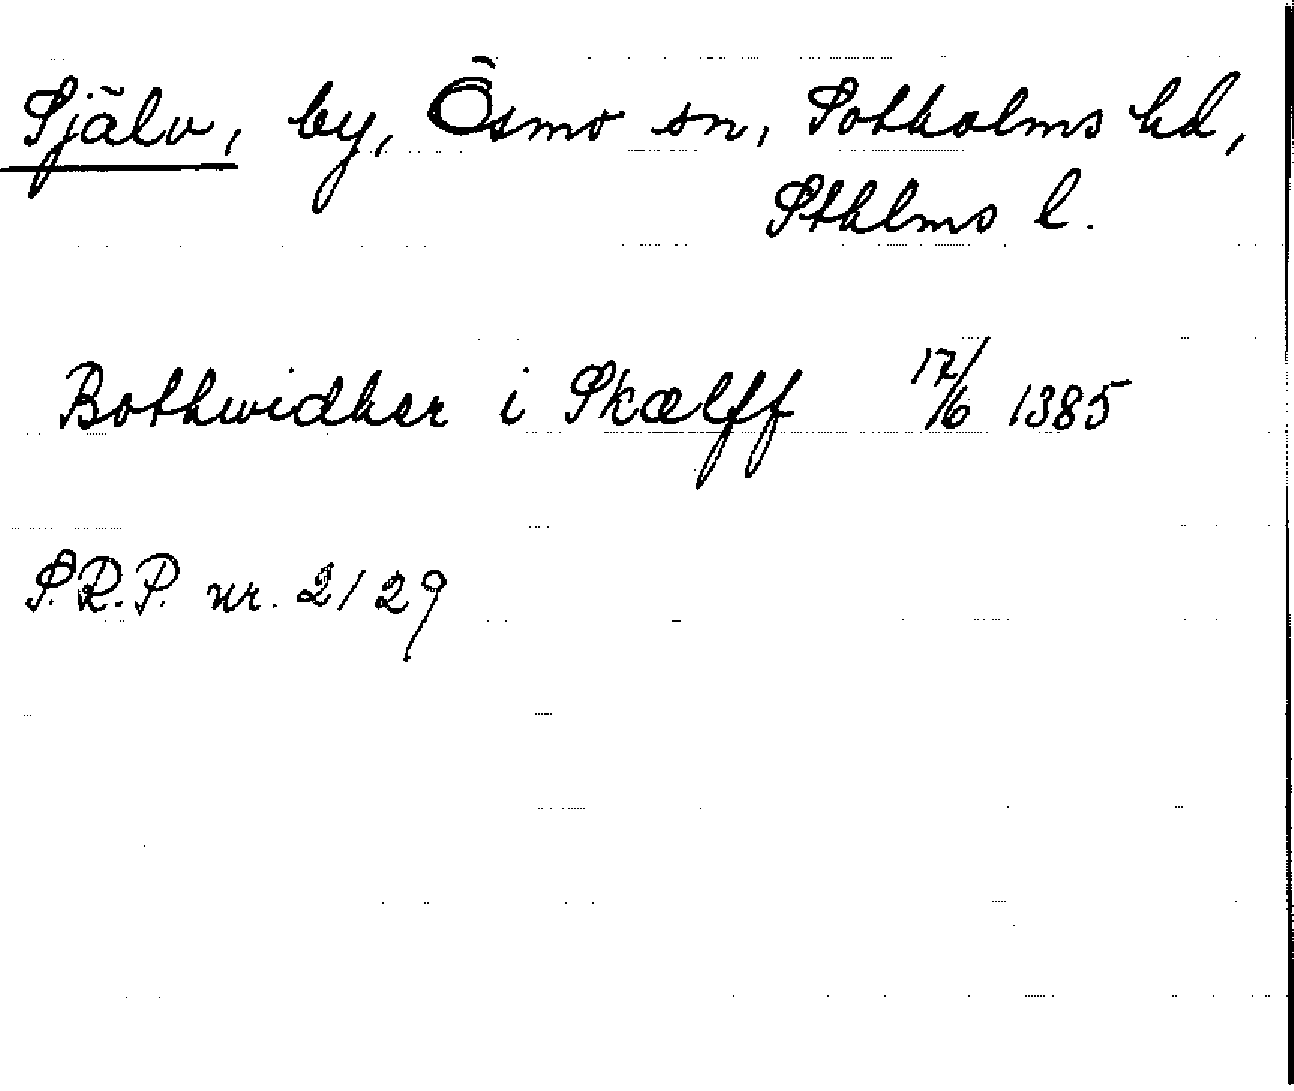 Själv, by, Ösmo sn, Sotholms hd,
Sthlms l.
Bothwidher i Skælff 17/6 1385
S.R.P. nr. 2129